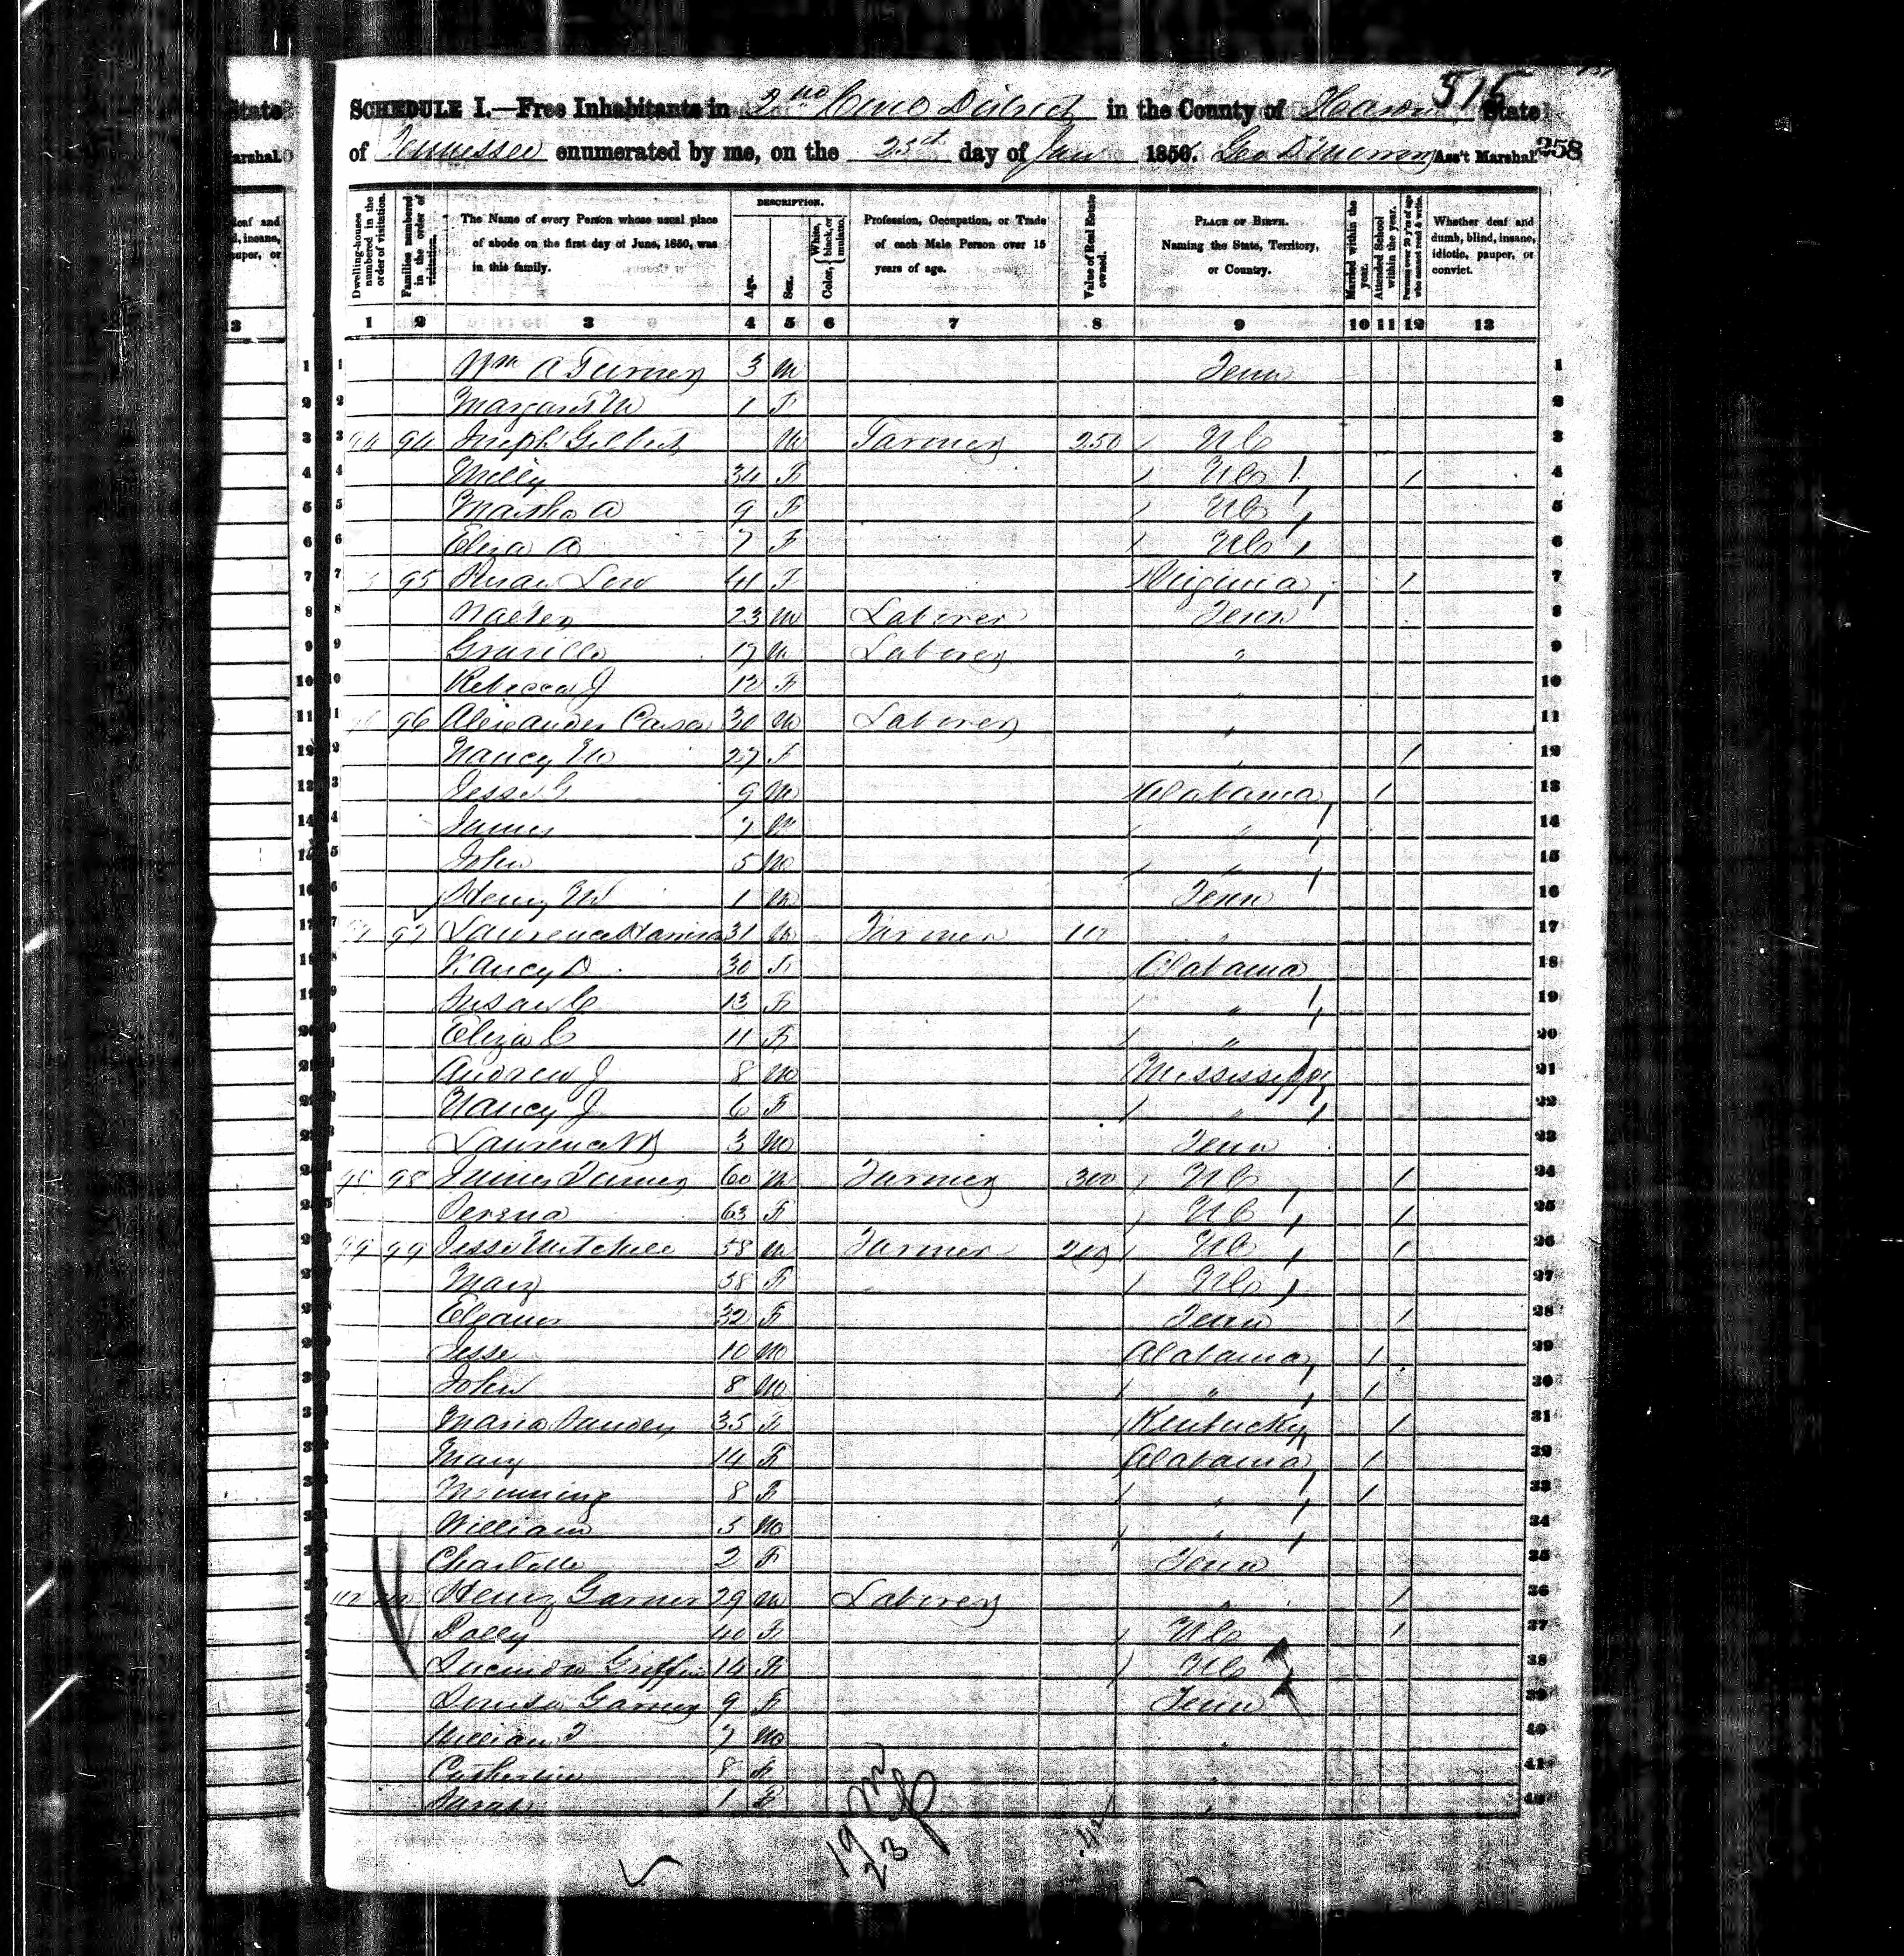 515
SCHEDULE I.—Free Inhabitants in 2nd Civil District in the County of Hardin State
of Tennessee enumerated by me, on the 25th day of Jan 1850. Geo D Morrow Ass't Marshal. 258
Dwelling-houses numbered in the order of visitation. Families numbered in the order of visitation. The Name of every Person whose usual place of abode on the first day of June, 1850, was in this family. DESCRIPTION. Age. Sex. Color, White, black, or mulatto. Profession, Occupation, or Trade of each Male Person over 15 years of age. Value of Real Estate owned. PLACE OF BIRTH. Naming the State, Territory, or Country. Married within the year. Attended School within the year. Persons over 20 y'rs of age who cannot read & write. Whether deaf and dumb, blind, insane, idiotic, pauper, or convict.
1 2 3 4 5 6 7 8 9 10 11 12 13
1 Wm A Turney 3 M Tenn 1
2 Margaret M 1 F 2
3 94 94 Joseph Gilbert M Farmer 250 NC 3
4 Milly 34 F NC / 4
5 Martha A 9 F NC 5
6 Eliza A 7 F NC 6
7 95 Susan Low 41 F Virginia / 7
8 23 M Laborer Tenn 8
9 Granville 17 M Laborer " 9
10 Rebecca J 12 F " 10
11 96 Alexander 30 M Laborer " 11
12 Nancy M 27 F " / 12
13 Jesse G 9 M Alabama / 13
14 James 7 M " 14
15 John 5 M " 15
16 Henry W 1 M Tenn 16
17 97 97 Laurence Harrison 31 M Farmer " 17
18 Nancy D 30 F Alabama 18
19 Susan C 13 F " 19
20 Eliza C 11 F " 20
21 Andrew J 8 M Mississippi 21
22 Nancy J 6 F " 22
23 Laurence 3 M Tenn 23
24 98 98 James Turney 60 M Farmer 300 NC / 24
25 63 F NC / 25
26 99 99 Jesse Mitchell 58 M Farmer 200 NC / 26
27 Mary 58 F NC 27
28 Eleanor 32 F Tenn / 28
29 Jesse 10 M Alabama / 29
30 John 8 M " / 30
31 Maria 35 F Kentucky / 31
32 Mary 14 F Alabama / 32
33 8 F " / 33
34 William 5 M " 34
35 Charlotte 2 F Tenn 35
36 100 100 Henry Garner 29 M Laborer " / 36
37 Polly 40 F NC / 37
38 Lucinda Griffin 14 F NC 38
39 Louisa Garner 9 F Tenn 39
40 William 7 M " 40
41 Catherine 8 F " 41
42 Sarah 1 F " 42
19 m
23 f
42